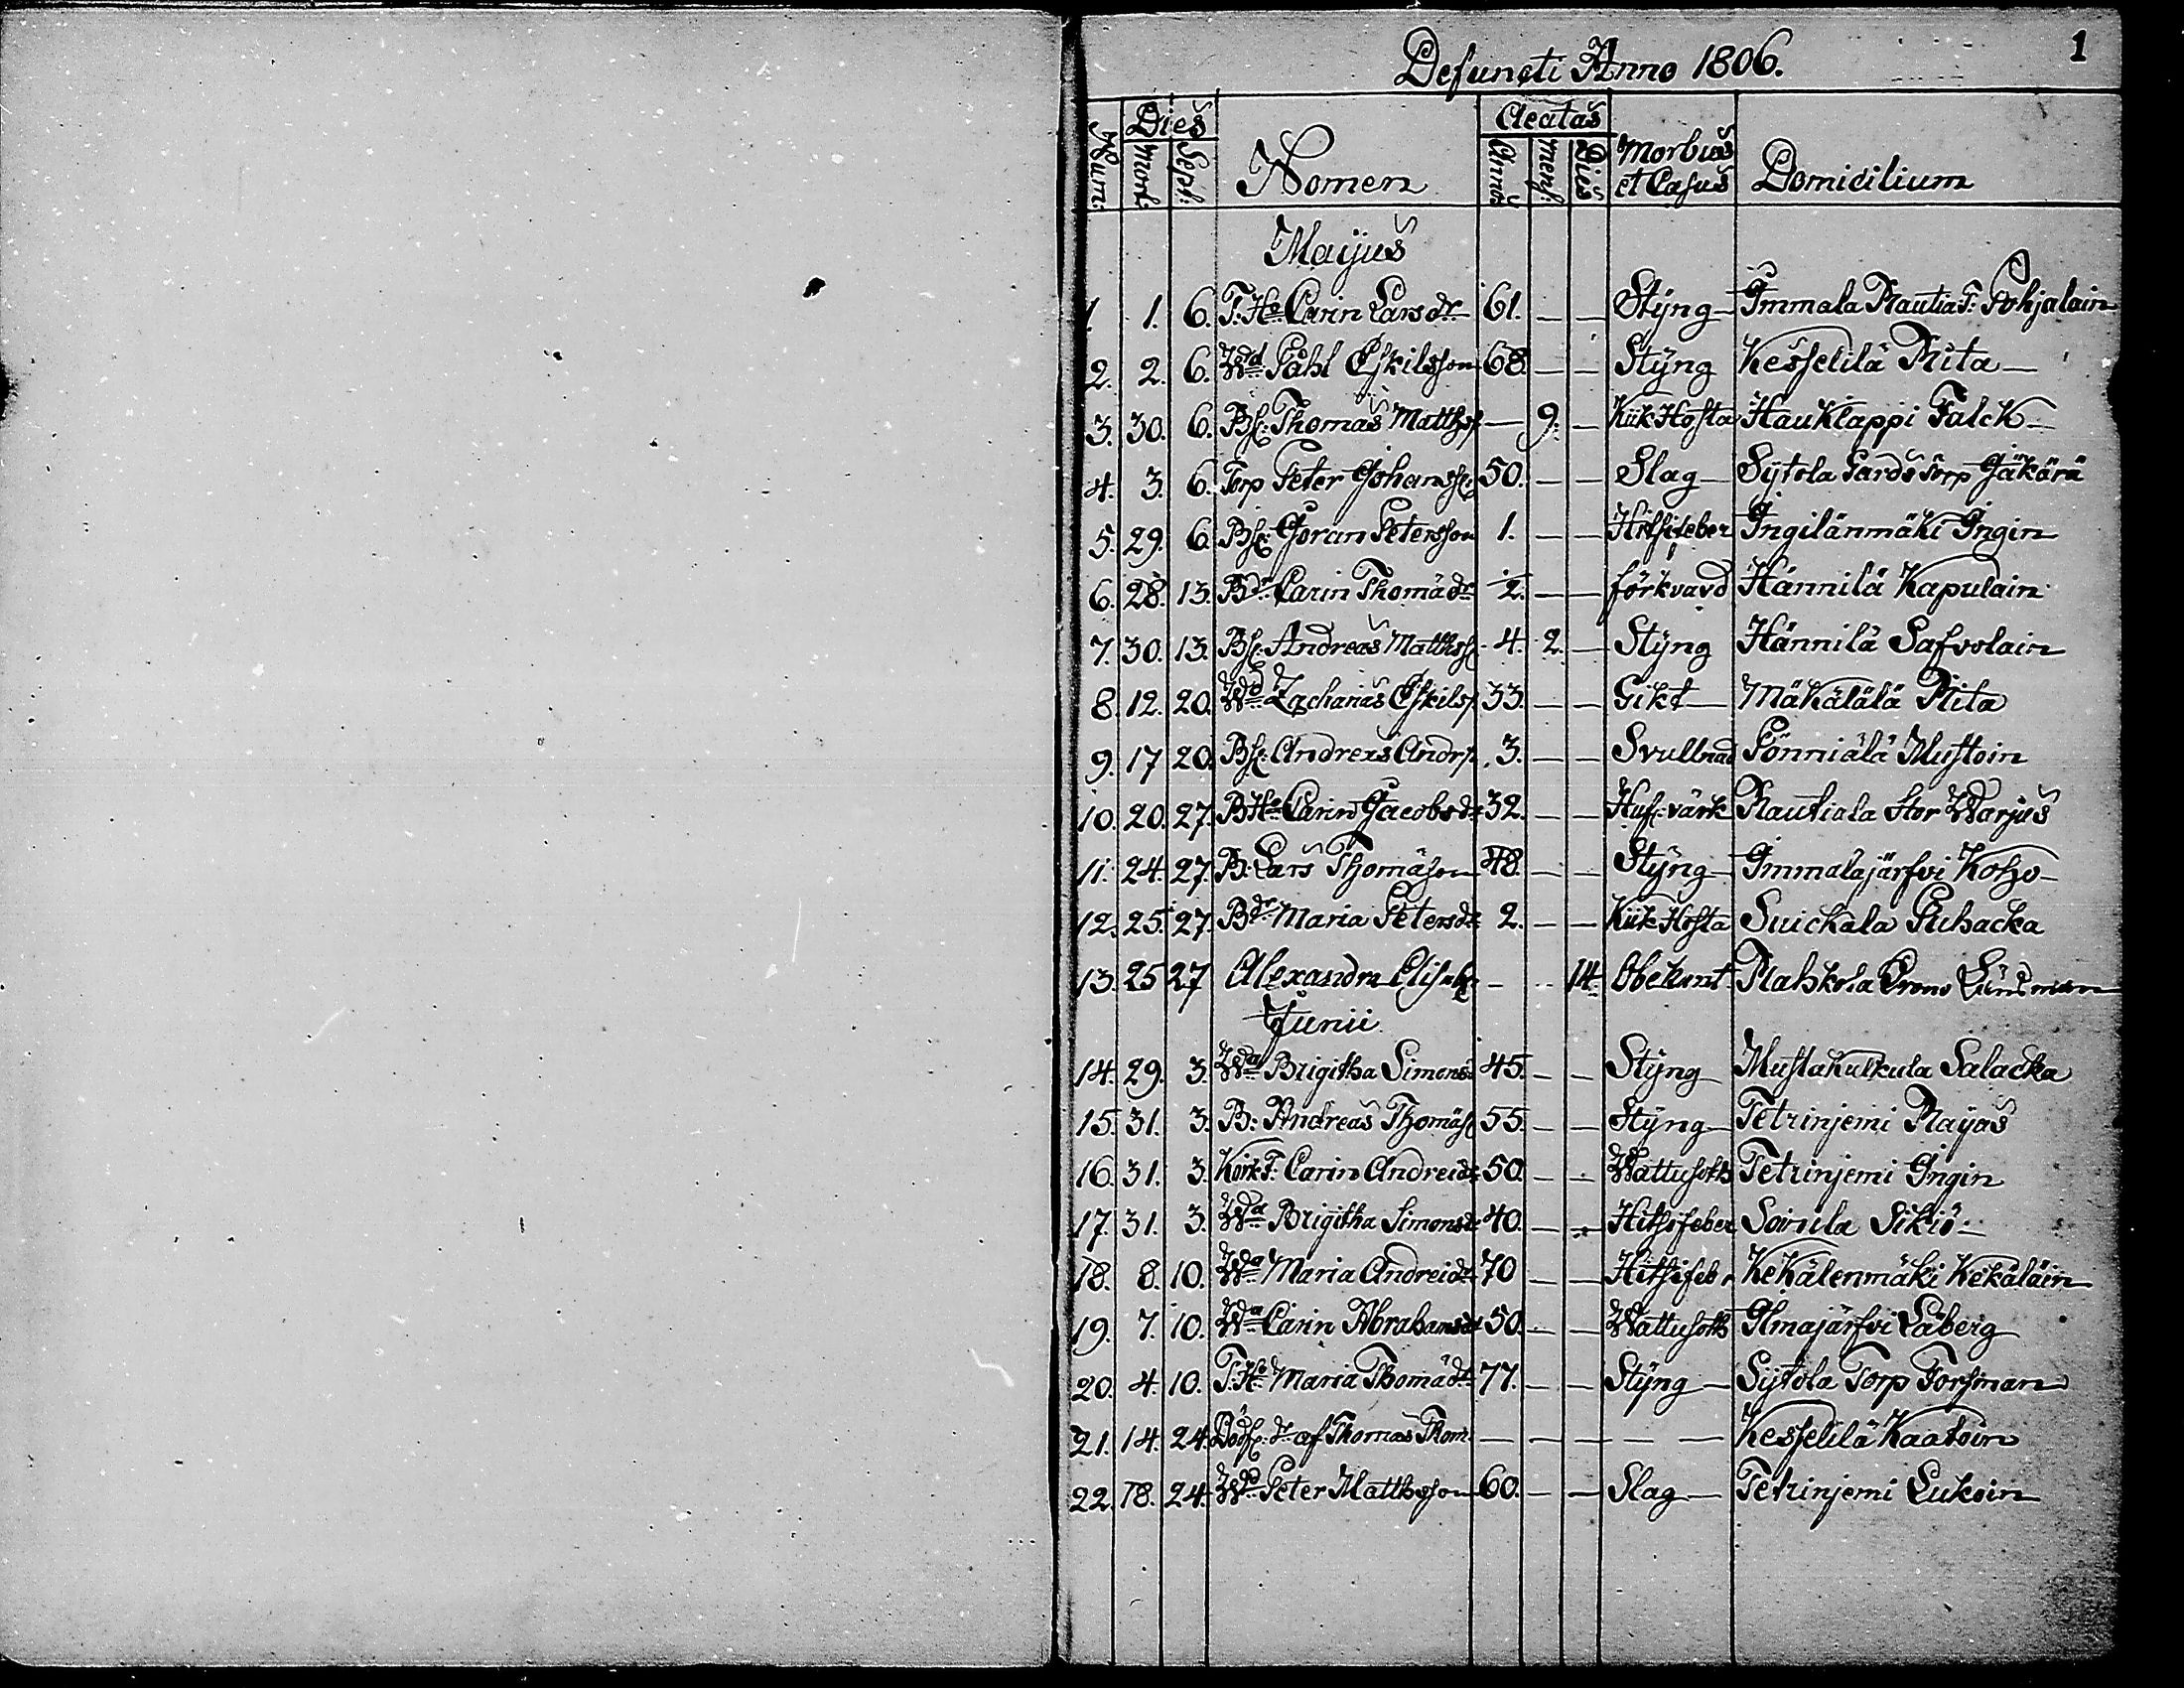 1
Defuncti Anno 1806.
Num: Dies Mort: Sept: Nomen Aeatas Anni Mens: Dies Morbus et Casus Domicilium
Maijus
1. 1. 6. T: Ha Carin Larsdr 61. — — Styng Immala Rautia T: Pohjalain
2. 2. 6. Wd Påhl Eskilsson 68. — — Styng Kesselilä Rita
3. 30. 6. Bs: Thomas Matthss — 9. — Kiik Hosta Hauklappi Falck
4. 3. 6. Torp Peter Johanss 50. — — Slag Sytola Lards Torp Jäkärä
5. 29. 6. Bs: Göran Petersson 1. — — Hitsifeber Ingilänmäki Ingin
6. 28. 13. Bdr Carin Thomædr 2. — — förkvavd Hännilä Kapulain
7. 30. 13. Bs: Andreas Matthss 4. 2. — Styng Hännilä Safvolain
8. 12. 20. Wd Zacharias Eskilss 33. — — Gikt Mäkälälä Rita
9. 17 20. Bs: Andreas Andrs. 3. — — Svullnad Pönniälä Mustoin
10. 20. 27. B Ha Carin Jacobsdr 32. — — Huf: värk Rautiala Stor Warjus
11. 24. 27. B: Lars Thomäson 48. — — Styng Immalajärfvi Koho
12. 25. 27. Bdr Maria Petersdr 2. — — Kiik Hosta Suickala Puhacka
13. 25 27 Alexandra Elisab: — 14. Obekant Rahkola Crono Länsman
Junii
14. 29. 3. Wa Brigitha Simons 45. — — Styng Mustakulkula Salacka
15. 31. 3. B: Andreas Thomäs 55. — — Styng Tetrinjemi Rayas
16. 31. 3. Körk T: Carin Andreidr 50. — — Wattusoth Tetrinjemi Ingin
17. 31. 3. Wa Brigitha Simonsdr 40. — — Hitsifeber Soirula Sikiö
18. 8. 10. Wa Maria Andreidr 70 — — Hitsifebr Kekälenmäki Kekäläin
19. 7. 10. Wa Carin Abrahamsdr 50. — — Wattusoth Ilmajärfvi Låberg
20. 4. 10. T: Ha Maria Thomädr 77. — — Styng Sytola Torp Forsman
21. 14. 24. Dödf: dr af Thomas Thom: — — — — — Kesselilä Kaatoin
22. 18. 24. Wd Peter Matthsson 60. — — Slag Tetrinjemi Lukoin